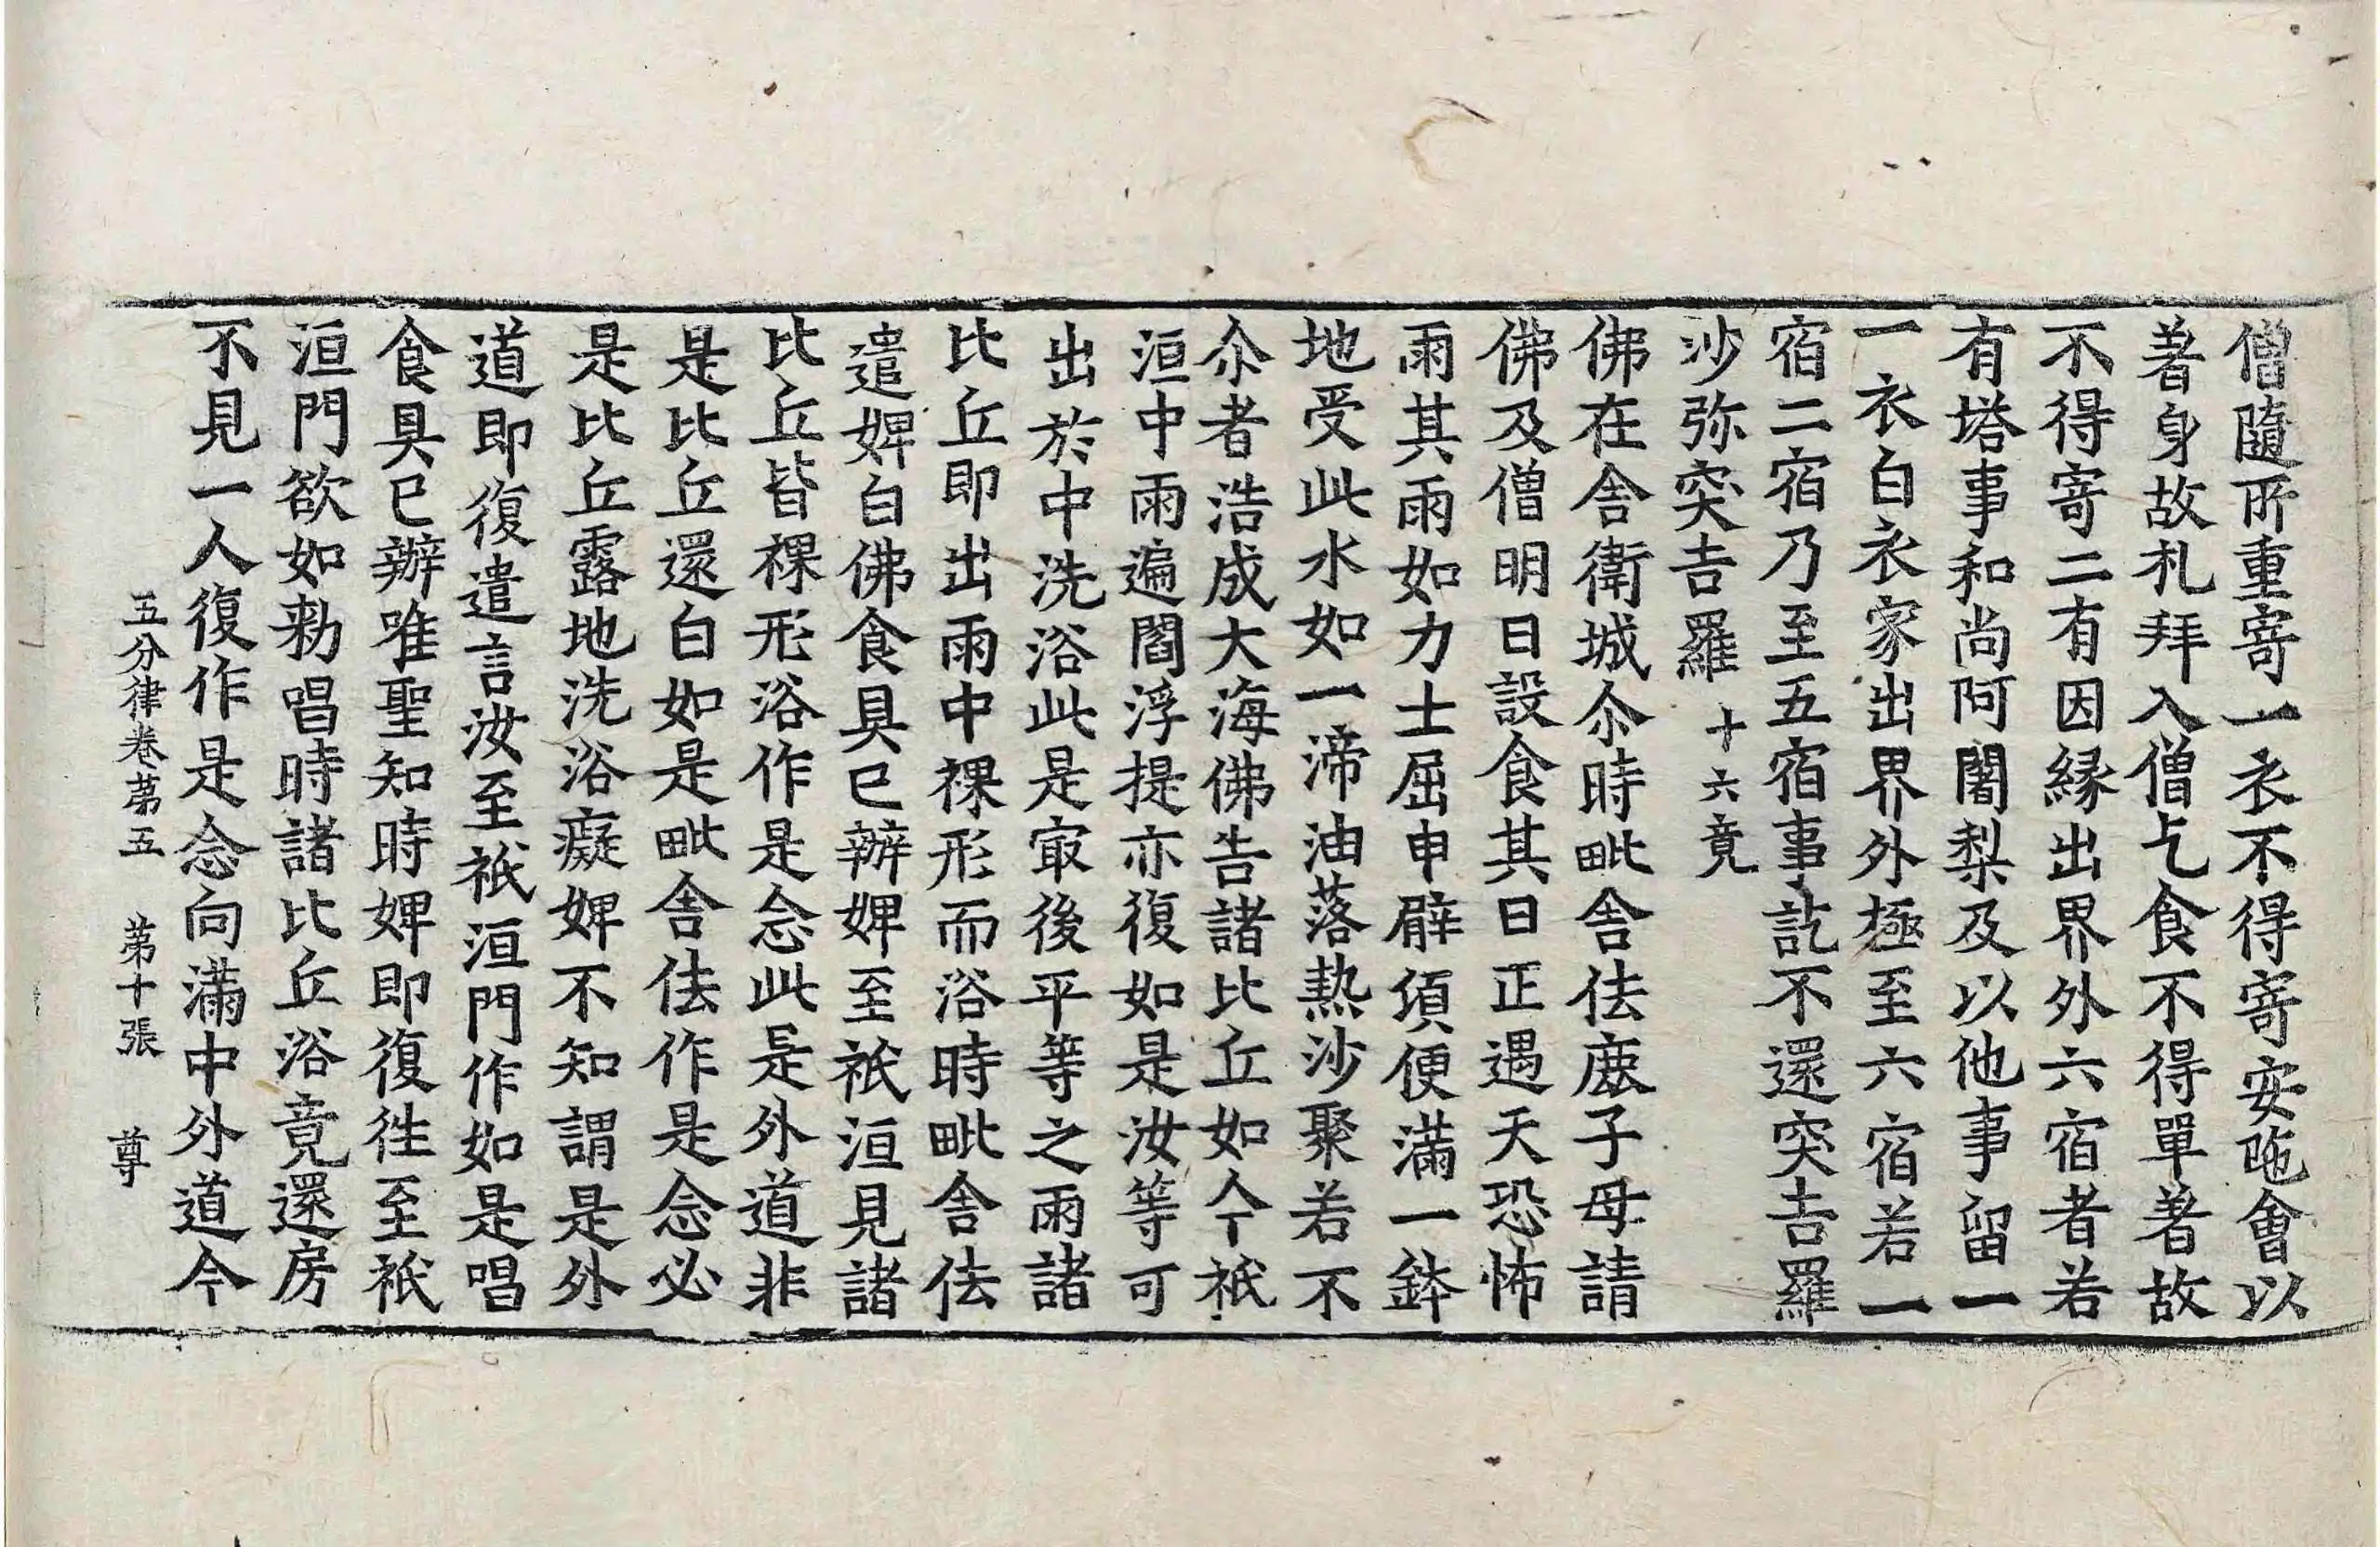 僧隨所重寄一衣不得寄安陁會以
著身故礼拜入僧乞食不得單著故
不得寄二有因緣出界外六宿者若
有塔事和尚阿闍梨及以他事留一
一衣白衣家出界外極至六宿若一
宿二宿乃至五宿事訖不還突吉羅
沙弥突吉羅 十六竟
佛在舍衛城尒時毗舍佉鹿子母請
佛及僧明日設食其日正遇天恐怖
雨其雨如力士屈申臂湏便滿一鉢
地受此水如一渧油落熱沙聚若不
尒者浩成大海佛告諸比丘如今祇
洹中雨遍閻浮提亦復如是汝等可
出於中洗浴此是冣後平等之雨諸
比丘即出雨中裸形而浴時毗舍佉
遣婢白佛食具已辦婢至祇洹見諸
比丘皆裸形浴作是念此是外道非
是比丘還白如是毗舍佉作是念必
是比丘露地洗浴癡婢不知謂是外
道即復遣言汝至祇洹門作如是唱
食具已辦唯聖知時婢即復徃至祇
洹門欲如勑唱時諸比丘浴竟還房
不見一人復作是念向滿中外道今
五分律卷苐五 苐十張 尊